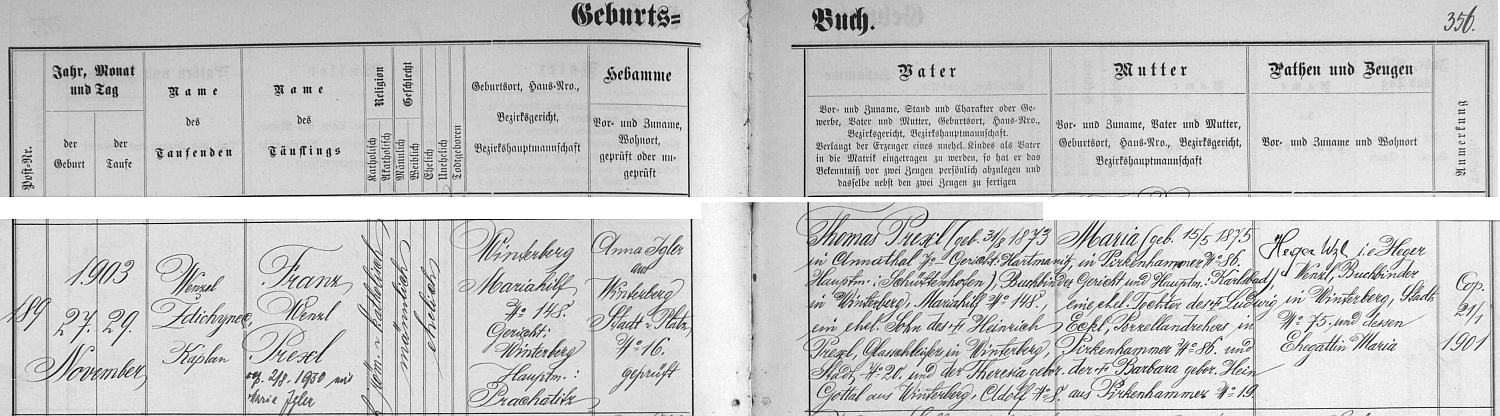 Geburts=
Buch.
356.
Post=Nr.
Jahr, Monat
und Tag
der
Geburt
der
Taufe
Name
des
Taufenden
Name
des
Täuflings
Religion
Katholisch
Akatholisch
Geschlecht
Männlich
Weiblich
Ehelich
Unehelich
Todtgeboren
Geburtsort, Haus=Nro.,
Bezirksgericht,
Bezirkshauptmannschaft
Hebamme
Vor= und Zuname,
Wohnort,
geprüft oder un=
geprüft
Vater
Vor= und Zuname, Stand und Charakter oder Ge=
werbe, Vater und Mutter, Geburtsort, Haus=Nro.,
Bezirksgericht, Bezirkshauptmannschaft.
Verlangt der Erzeuger eines unehel. Kindes als Vater
in die Matrik eingetragen zu werden, so hat er das
Bekenntniß vor zwei Zeugen persönlich abzulegen und
dasselbe nebst den zwei Zeugen zu fertigen
Mutter
Vor= und Zuname, Vater und Mutter,
Geburtsort, Haus=Nro., Bezirksgericht,
Bezirkshauptmannschaft
Pathen und Zeugen
Vor= und Zuname und Wohnort
Anmerkung
189
1903
27. 29.
November
Wenzel
Zdichynec
Kaplan
Franz
Wenzl
Prexl
cop. 2/8. 1930 mit
Marie Igler
röm. katholisch
männlich
ehelich
Winterberg
Mariahilf
No 148.
Gericht:
Winterberg
Hauptm.:
Prachatitz
Anna Igler
aus
Winterberg
Stadt Platz
No 16.
geprüft
Thomas Prexl (geb. 31/8 1873
in Annathal No Gericht: Hartmanitz
Hauptm: Schüttenhofen), Buchbinder
in Winterberg, Mariahilf No 148.
ein ehel. Sohn des Heinrich
Prexl, Glasschleifers in Winterberg,
Stadt No 20. und der Theresia gebor.
Gottal aus Winterberg, Adolf No 8.
Maria (geb. 15/5 1875
in Pirkenhammer No 86.
Gericht und Hauptm: Karlsbad),
eine ehel. Tochter des Ludwig
Eckl, Porzellandrehers in
Pirkenhammer No 86. und
der Barbara gebor. Hein
aus Pirkenhammer No 19.
Heger Wzl i.e Heger
Wenzl, Buchbinder
in Winterberg, Stadt
No 75. und dessen
Ehegattin Maria
Cop.
21/1
1901